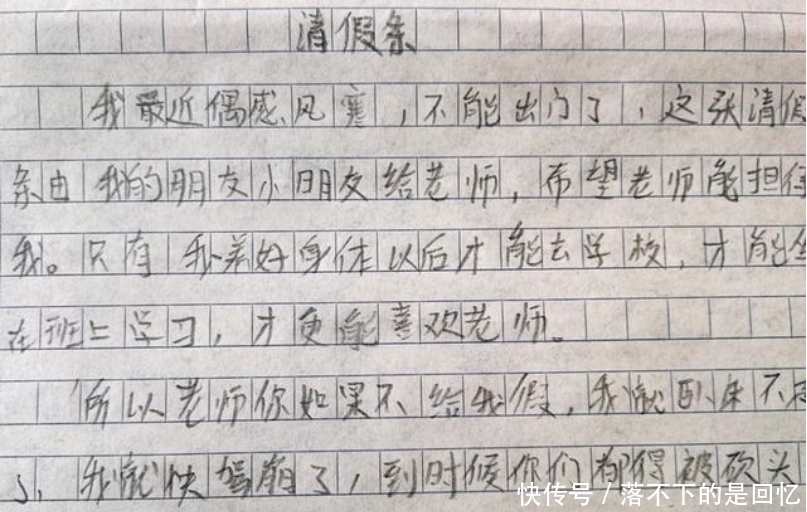 清假条
我最近偶感风寒，不能出门了，这张清假
条由我的朋友小明友给老师，希望老师能担待
我。只有我养好身体以后才能去学校，才能
在班上学习，才更能喜欢老师。
所以老师你如果不给我假，我就卧床不起
了，我就快驾崩了，到时候你们都得被砍头
快传号/落不下的是回忆